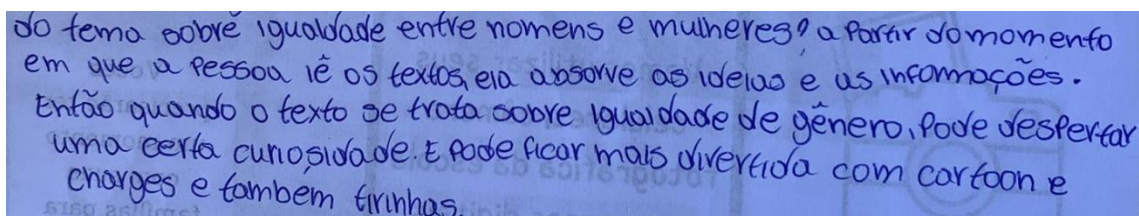 do tema sobre igualdade entre homens e mulheres? a partir do momento
em que a pessoa lê os textos, ela absorve as ideias e as informações.
Então quando o texto se trata sobre igualdade de gênero, pode despertar
uma certa curiosidade. E pode ficar mais divertida com cartoon e
charges e também tirinhas.